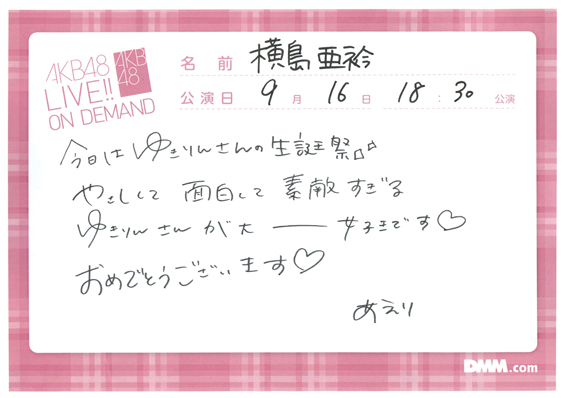 AKB48
LIVE!!
ON DEMAND
AKB
48
名前 横島亜衿
公演日 9月16日 18:30公演
今日はゆきりんさんの生誕祭♫
やさしくて 面白くて 素敵すぎる
ゆきりんさんが大――好きです♡
おめでとうございます♡
あえり
DMM.com